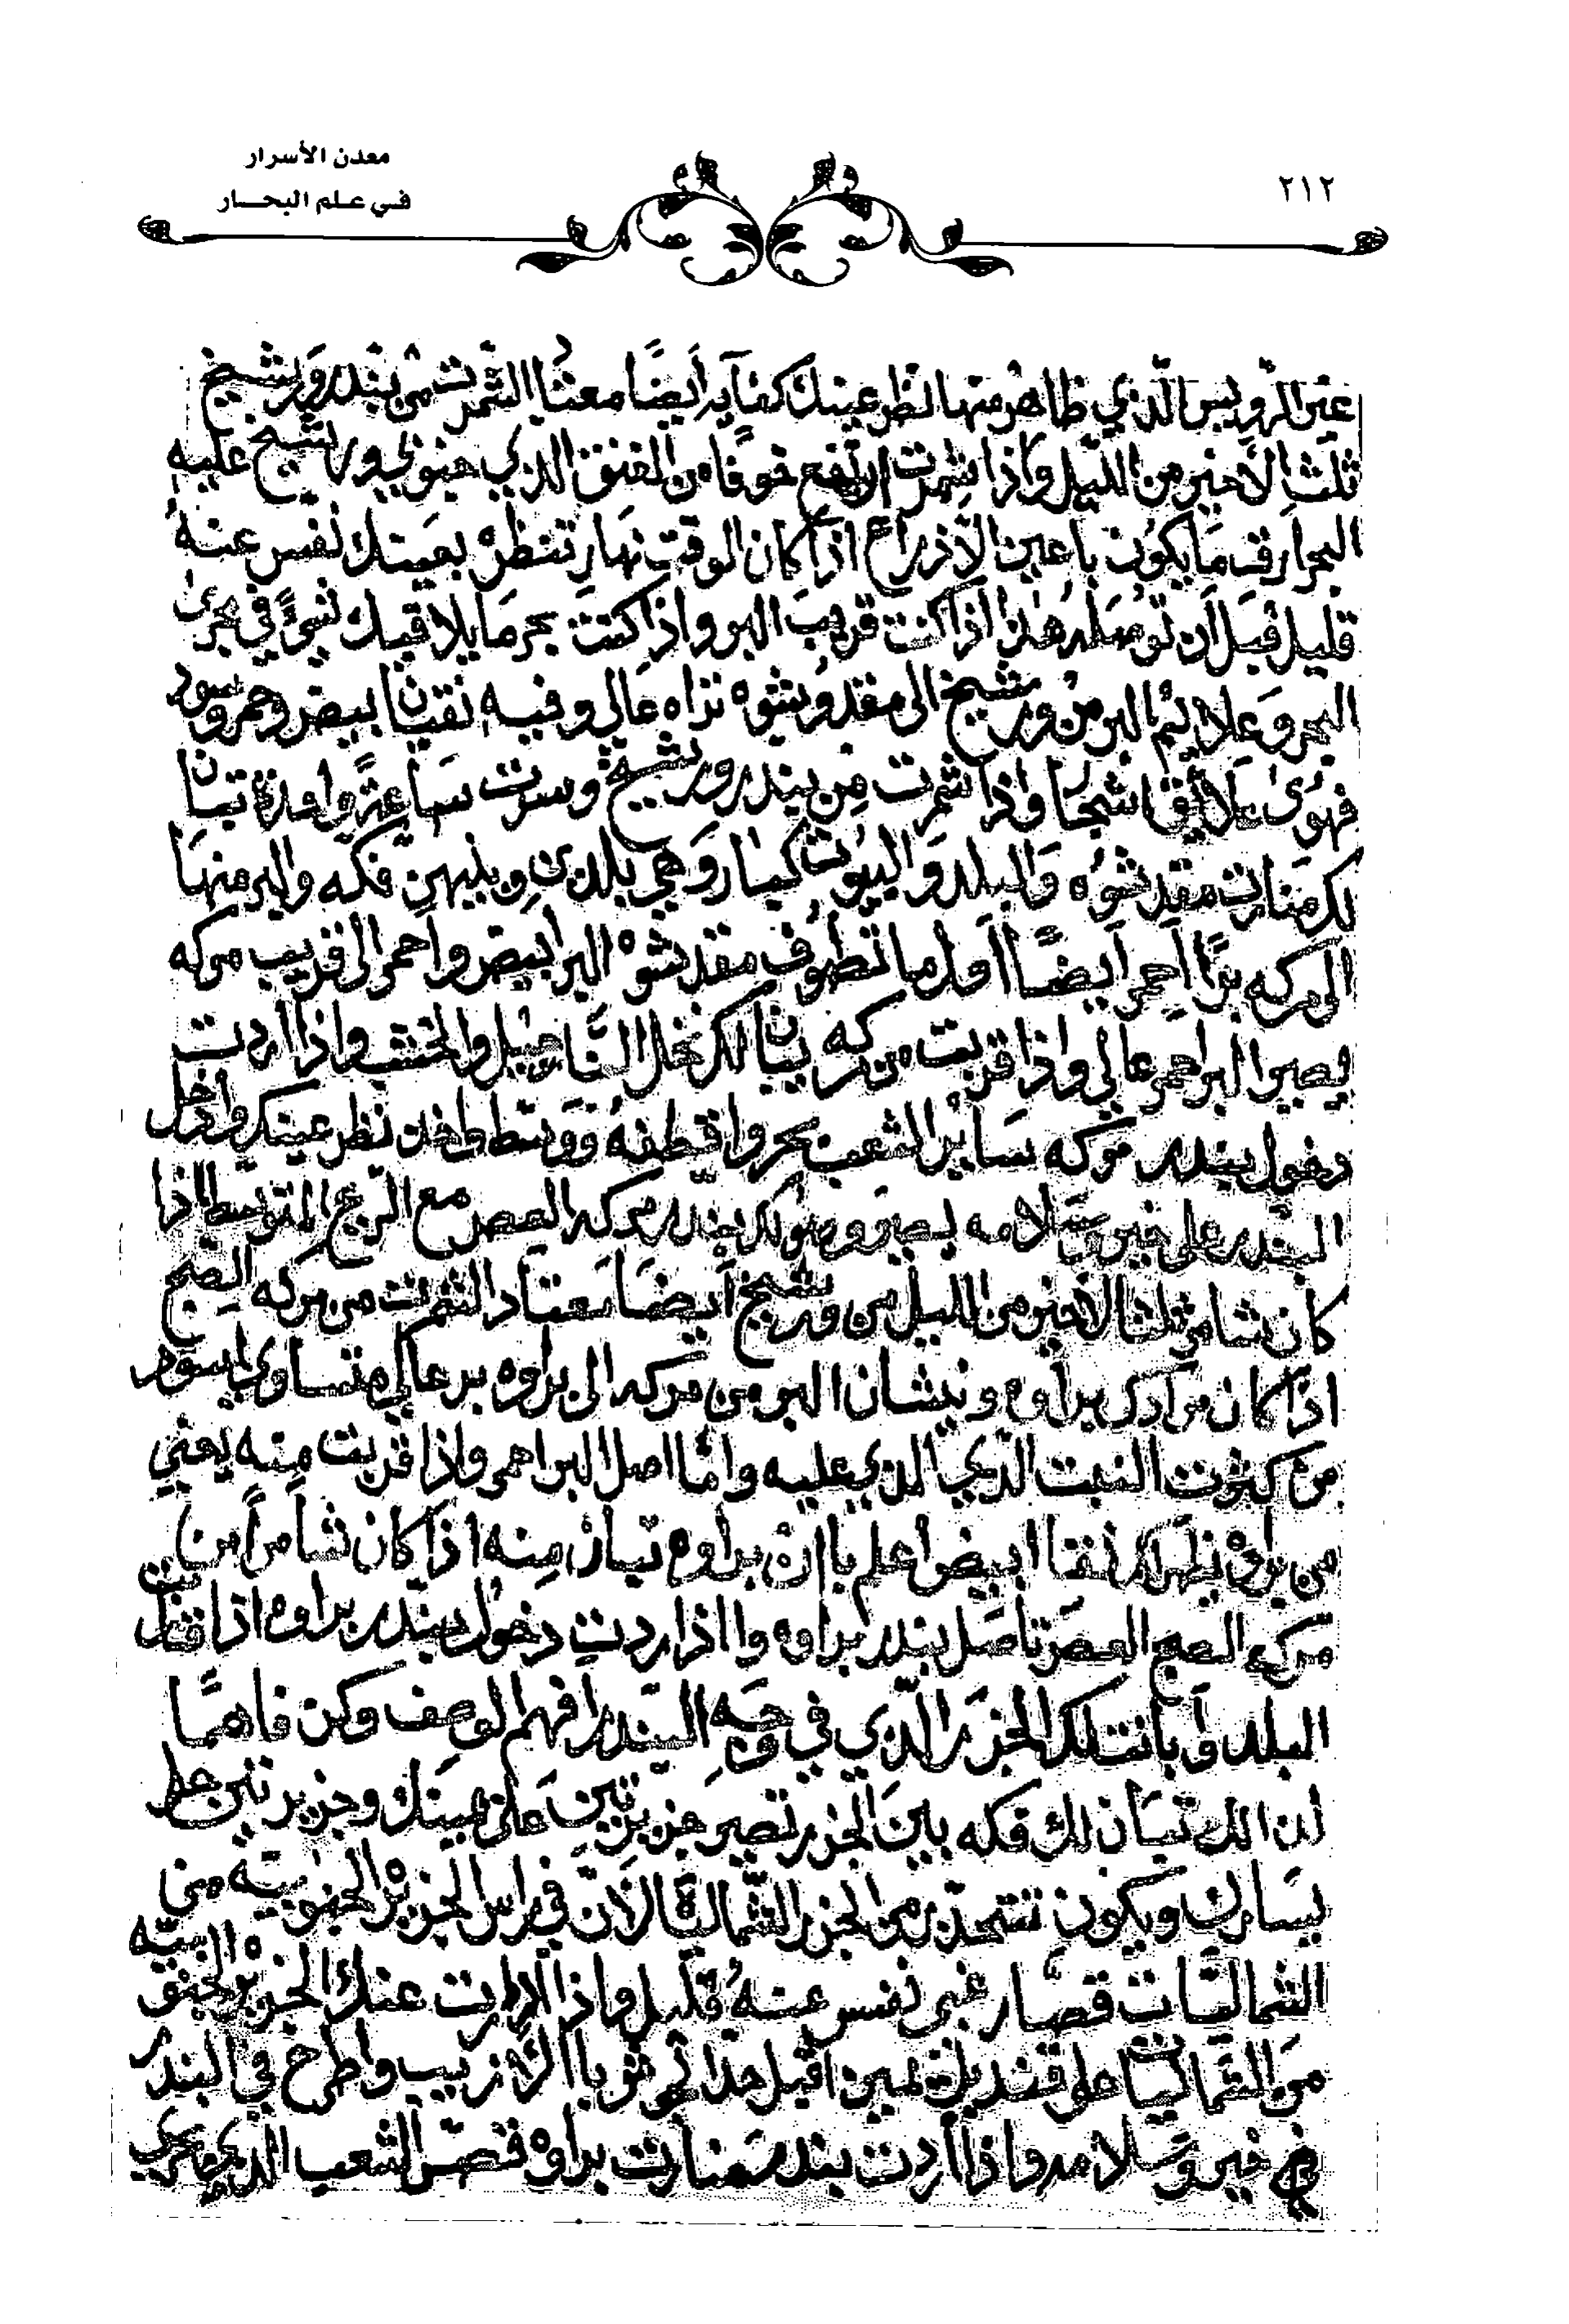 معدن الأسرار
في علم البحار
٢١٢
عن الرويس الذي ظاهر منها نظر عينك كفايه أيضًا معتاا الشمر تشمر من بندر ورشيخ
ثلث الأخير من الليل واذا شمرت ارتفع خوفًا من الفنق الذي جنوبي ورشيخ عليه
البحر ارق ما يكون باعين الأذرع اذا كان الوقت نهار تنظره بعينك نفس عنهُ
قليل قبل أن توصله هذا اذا كنت قريب البر واذا كنت بحر ما يلاقيك شيءً في مجرىٰ
البحر وعلايم البر من ورشيخ الى مقدشوه تراه عالي وفيه نقيان بيض وحمر وسود
فهوىٰ بلا شجار واذا شمرت من بندر ورشيخ وسرت ساعةً واحدة تبان
لك منارت مقدشوه والبلد والبيوت كبار وهي بلدين وبينهن فكه والبر منها
الى مركه برًّا أحمر أيضًا أول ما تطوف مقدشوه البر ابيض واحمر الى قريب مركه
يصير البر احمر عالي واذا قربت من مركه يبان لك نخل النارجيل والخشب واذا اردت
دخول بندر مركه ساير الشعب بحر واقطفه ووسط واخذ نظر عينك وادخل
البندر على خير وسلامه يصير وصولك بندر مركه العصر مع الريح المتوسط اذا
كان شامر ثلث الأخير من الليل من ورشيخ أيضًا معتاد الشمرت من مركه الصبح
اذا كان مرادك براوه ونيشان البر من مركه الى براوه بر عالي متساوي اسود
من كثرت النبت الذي الذي عليه وامّا اصل البر احمر واذا قربت منه يعني
من براوه يظهر لك نقا ابيض اعلم باان براوه تبان منه اذا كان شامراً من
مركه الصبح العصر تاصل بندر براوه واذا اردت دخول بندر براوه اذا قتبلت
البلد وبانت لك الجزر الذي في وجه البندر افهم الوصف وكن فاهمًا
لأن الك تبان لك فكه باين الجزر تصير جزيرتين على يمينك وجزيرتين على
يسارك ويكون تتحذر من الجزر الشماليّة الأن في راس الجزيرة الجنوبيّة من
الشماليّات قصّار غبي نفس عنهُ قليل واذا دارت عنك الجزيرة الجنوبيّه
من الشماليات على قنديلت يمين اقبل حذا ثو با الأزيب واطرح في البندر
في خير وسلامه واذا أردت بندر منارت براوه فتصر الشعب الذي بحري